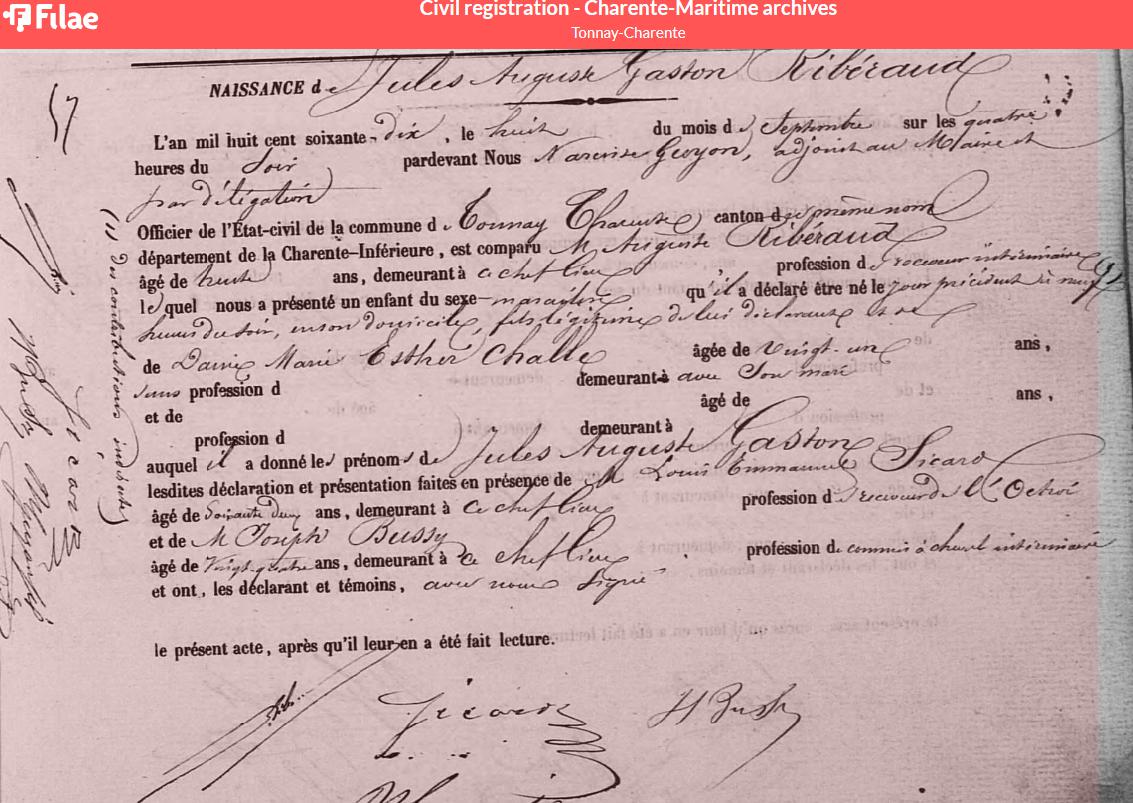 Filae
Civil registration - Charente-Maritime archives
Tonnay-Charente
57
NAISSANCE de Jules Auguste Gaston Ribéraud
L'an mil huit cent soixante-dix, le huit du mois de Septembre sur les quatre
heures du Soir pardevant Nous Narcisse Guyon, adjoint au Maire et
par délégation
Officier de l'État-civil de la commune de Tonnay Charente canton de même nom
département de la Charente-Inférieure, est comparu M. Auguste Ribéraud
âgé de trente ans, demeurant à ce chef lieu profession de receveur intérimaire (1)
lequel nous a présenté un enfant du sexe masculin qu'il a déclaré être né le jour précédent à neuf
heures du soir, en son domicile, fils légitime de lui déclarant et
de Dame Marie Esther Challe âgée de vingt-un ans,
sans profession d demeurant avec Son mari
et de âgé de ans,
profession d demeurant à
auquel il a donné les prénoms de Jules Auguste Gaston
lesdites déclaration et présentation faites en présence de M Louis Emmanuel Sicard
âgé de Soixante deux ans, demeurant à ce chef lieu profession de receveur de l'Octroi
et de M Joseph Bussy
âgé de Vingt-quatre ans, demeurant à ce chef lieu profession de commis à cheval intérimaire
et ont, les déclarant et témoins, avec nous Signé
le présent acte, après qu'il leur en a été fait lecture.
(1) des contributions indirectes
Sicard
Sicard
J Bussy